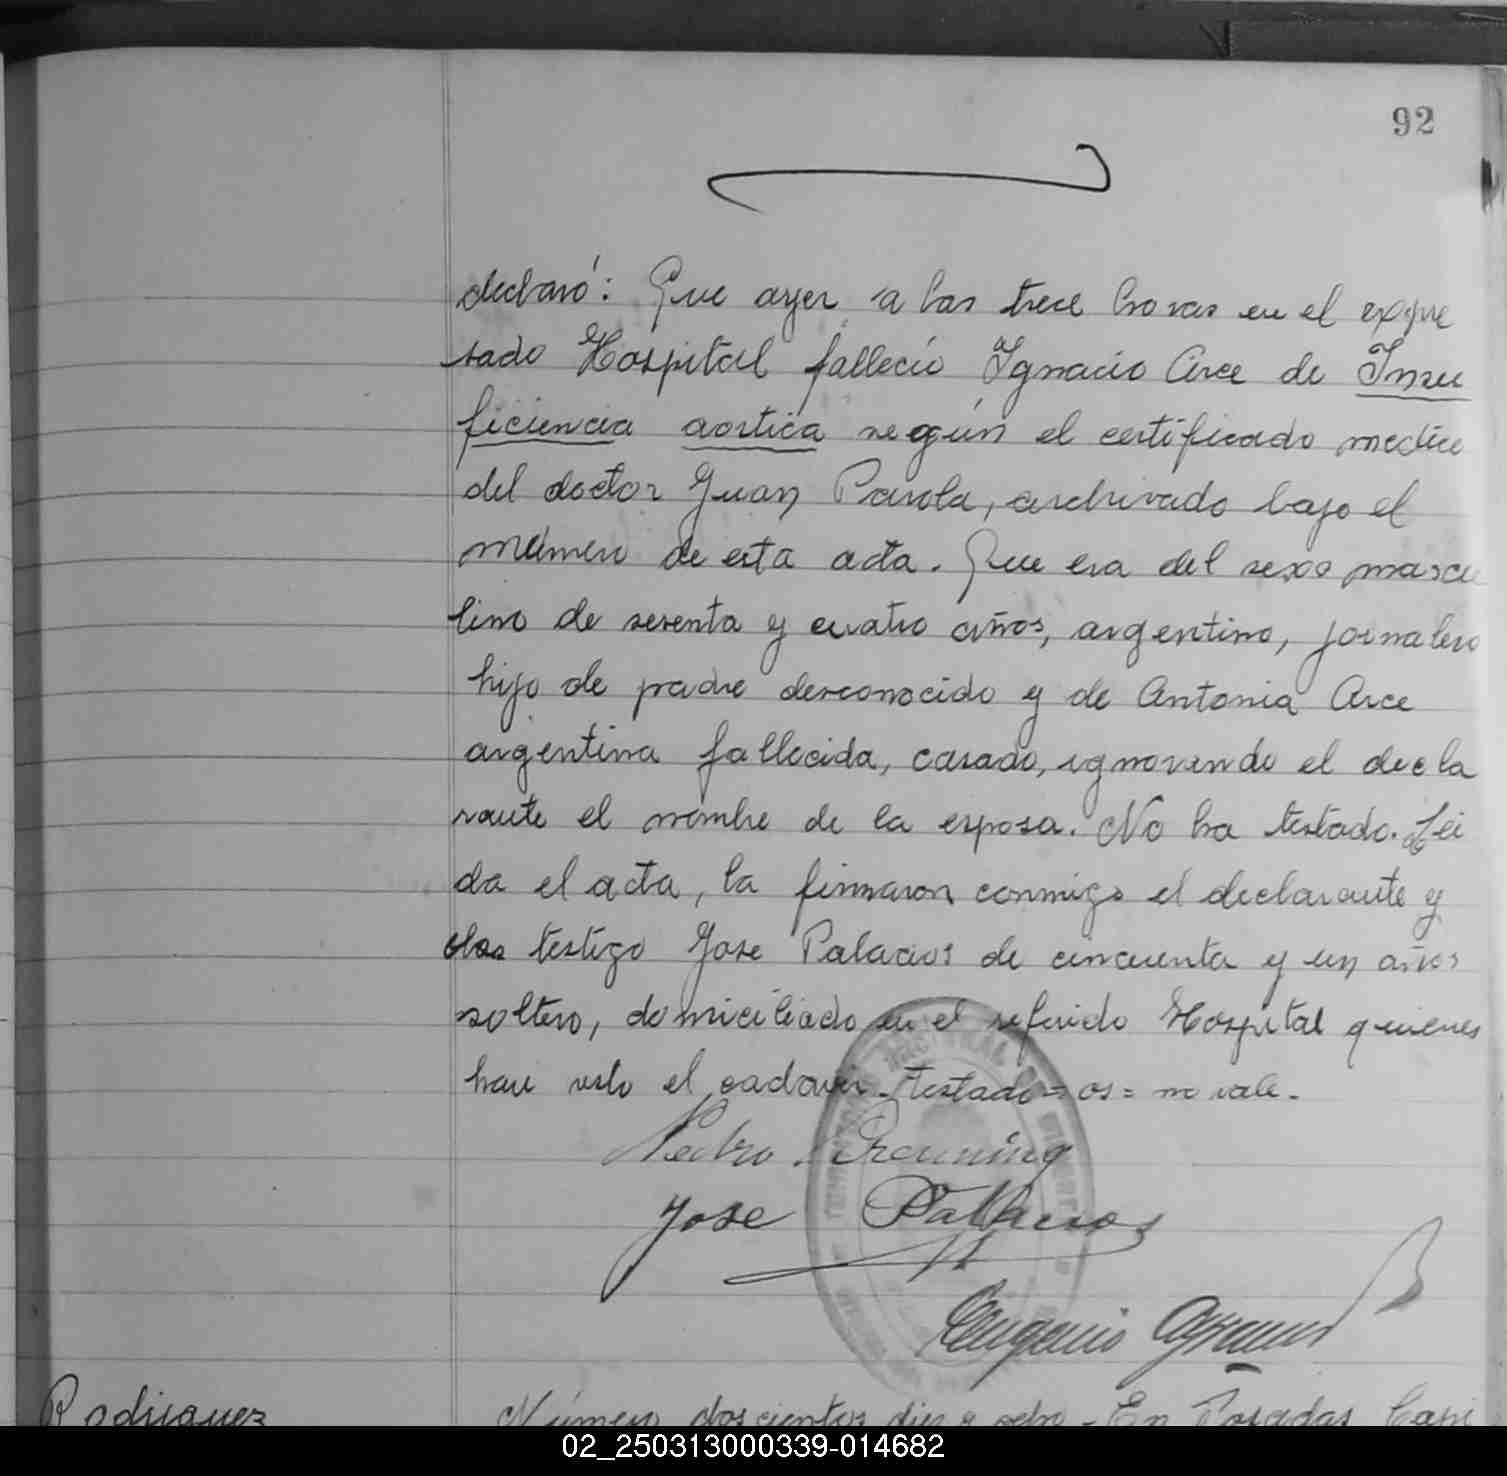 92
declaró: Que ayer a las trece horas en el expre
sado Hospital falleció Ignacio Arce de Insu
ficiencia aortica según el certificado medico
del doctor Juan Parola, archivado bajo el
número de esta acta. Que era del sexo mascu
lino de sesenta y cuatro años, argentino, jornalero
hijo de padre desconocido y de Antonia Arce
argentina fallecida, casado, ignorando el decla
rante el nombre de la esposa. No ha testado. Lei
da el acta, la firmaron conmigo el declarante y
el testigo Jose Palacios de cincuenta y un años
soltero, domiciliado en el referido Hospital quienes
han visto el cadaver. Testado=os= no vale.
Pedro
Jose Pallacios
Eugenio
Rodriguez
Número doscientos diez y ocho - En Posadas Capi
02_250313000339-014682